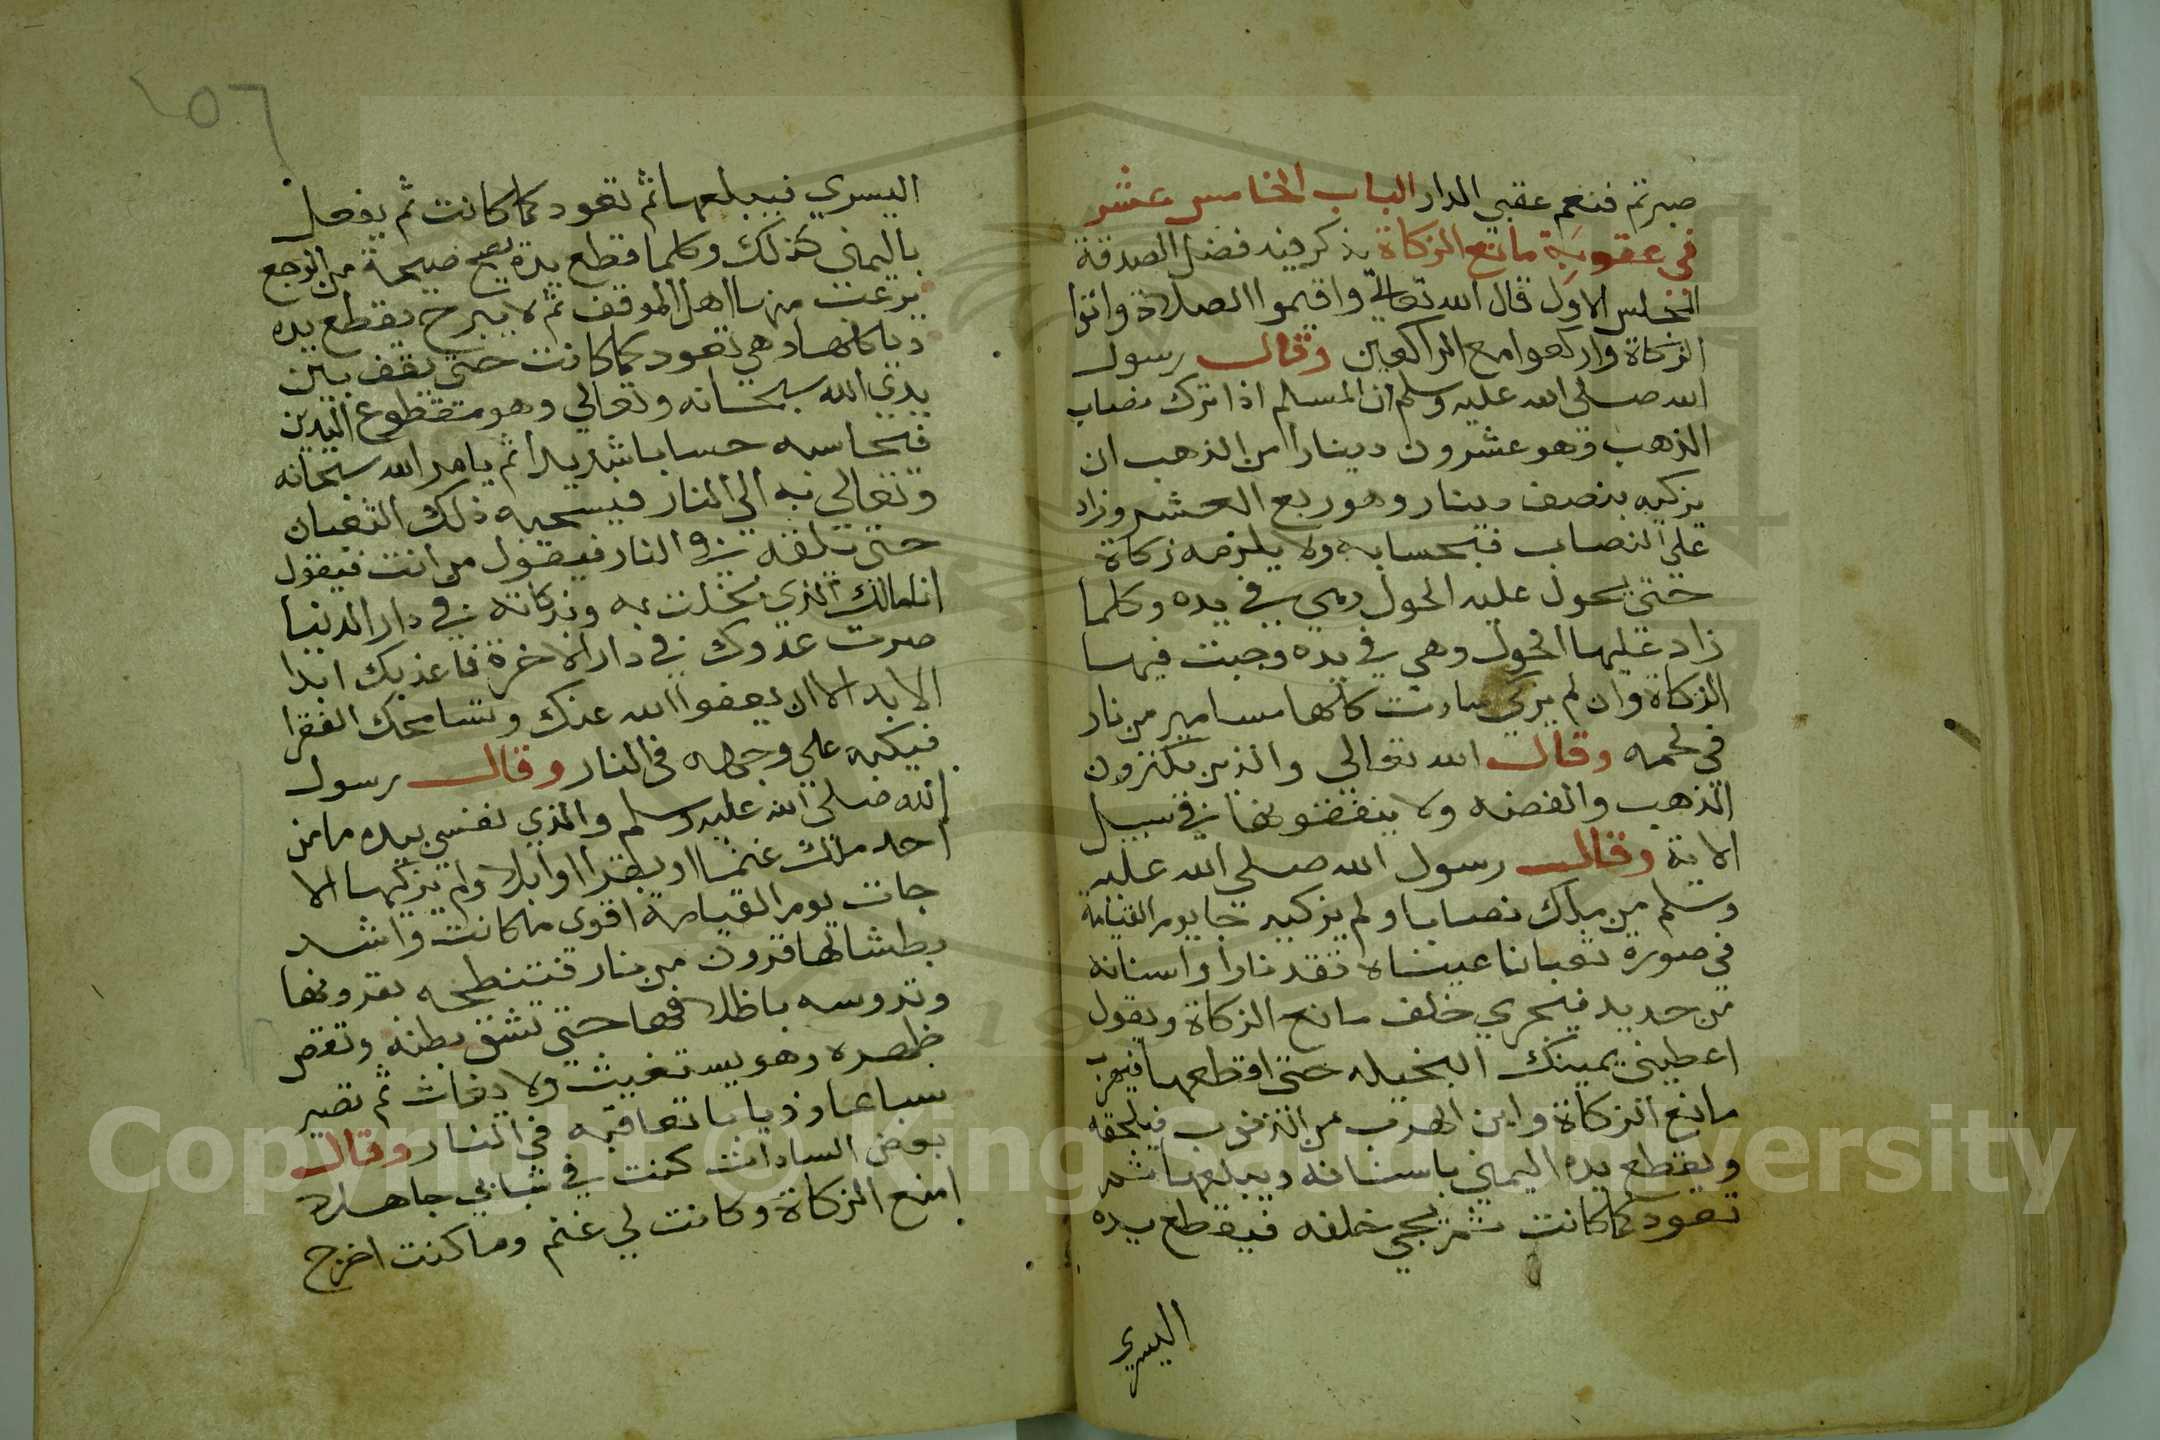 صبرتم فنعم عقبي الدار الباب الخامس عشر
في عقوبة مانع الزكاة يذكر فيه فضل الصدقة
المجلس الاول قال الله تعالى واقيموا الصلاة واتوا
الزكاة واركعوا مع الراكعين وقال رسول
الله صلى الله عليه وسلم ان المسلم اذا ترك نصاب
الذهب وهو عشرون دينارا من الذهب ان
يزكيه بنصف دينار وهو ربع العشر وزاد
علي النصاب فبحسابه ولا يلزمه زكاة
حتي يحول عليه الحول وهي في يده وكلما
زاد عليها الحول وهي في يده وجبت فيها
الزكاة وان لم يزكي صارت كلها مسامير من نار
في لحمه وقال الله تعالي والذين يكنزون
الذهب والفضه ولا ينفقونها في سبيل
الاية وقال رسول الله صلي الله عليه
وسلم من ملك نصابا ولم يزكيه جا يوم القيامة
في صورة ثعبانا عيناه تقد نارا واسنانه
من حديد فيجري خلف مانع الزكاة ويقول
اعطيني يمينك البخيله حتي اقطعها فيهرب
مانع الزكاة واين الهرب من الذنوب فيلحقه
ويقطع يده اليمني باسنانه ويبلعها ثم
تعود كما كانت ثم يجي خلفه فيقطع يده
اليسري
١٥٦
اليسري فيبلعها ثم تعود كما كانت ثم يفعل
باليمني كذلك وكلما قطع يده يصيح صيحة من الوجع
يرعت منها اهل الموقف ثم لا يبرح يقطع يده
وياكلها وهي تعود كما كانت حتي يقف بين
يدي الله سبحانه وتعالي وهو مقطوع اليدين
فيحاسبه حسابا شديدا ثم يامر الله سبحانه
وتعالي به الي النار فيسحبه ذلك الثعبان
حتي يلقه في النار فيقول من انت فيقول
انا مالك الذي بخلت به وبزكاته في دار الدنيا
صرت عدوك في دار الاخرة فاعذبك ابدا
الابد الا ان يعفوا الله عنك وتسامحك الفقرا
فيكبه علي وجهه في النار وقال رسول
الله صلى الله عليه وسلم والذي نفسي بيده ما من
احد ملك غنما او بقرا او ابلا ولم يزكيها الا
جات يوم القيامة اقوى ما كانت واشد
بطشا لها قرون من نار فتنطحه بقرونها
وتدوسه باظلافها حتي تشق بطنه وتقصر
ظهره وهو يستغيث ولا يغاث ثم تصير
سباعا وذيابا تعاقبه في النار وقال
بعض السادات كنت في شبابي جاهلا
امنع الزكاة وكانت لي غنم وما كنت اخرج
Copyright © King Saud University